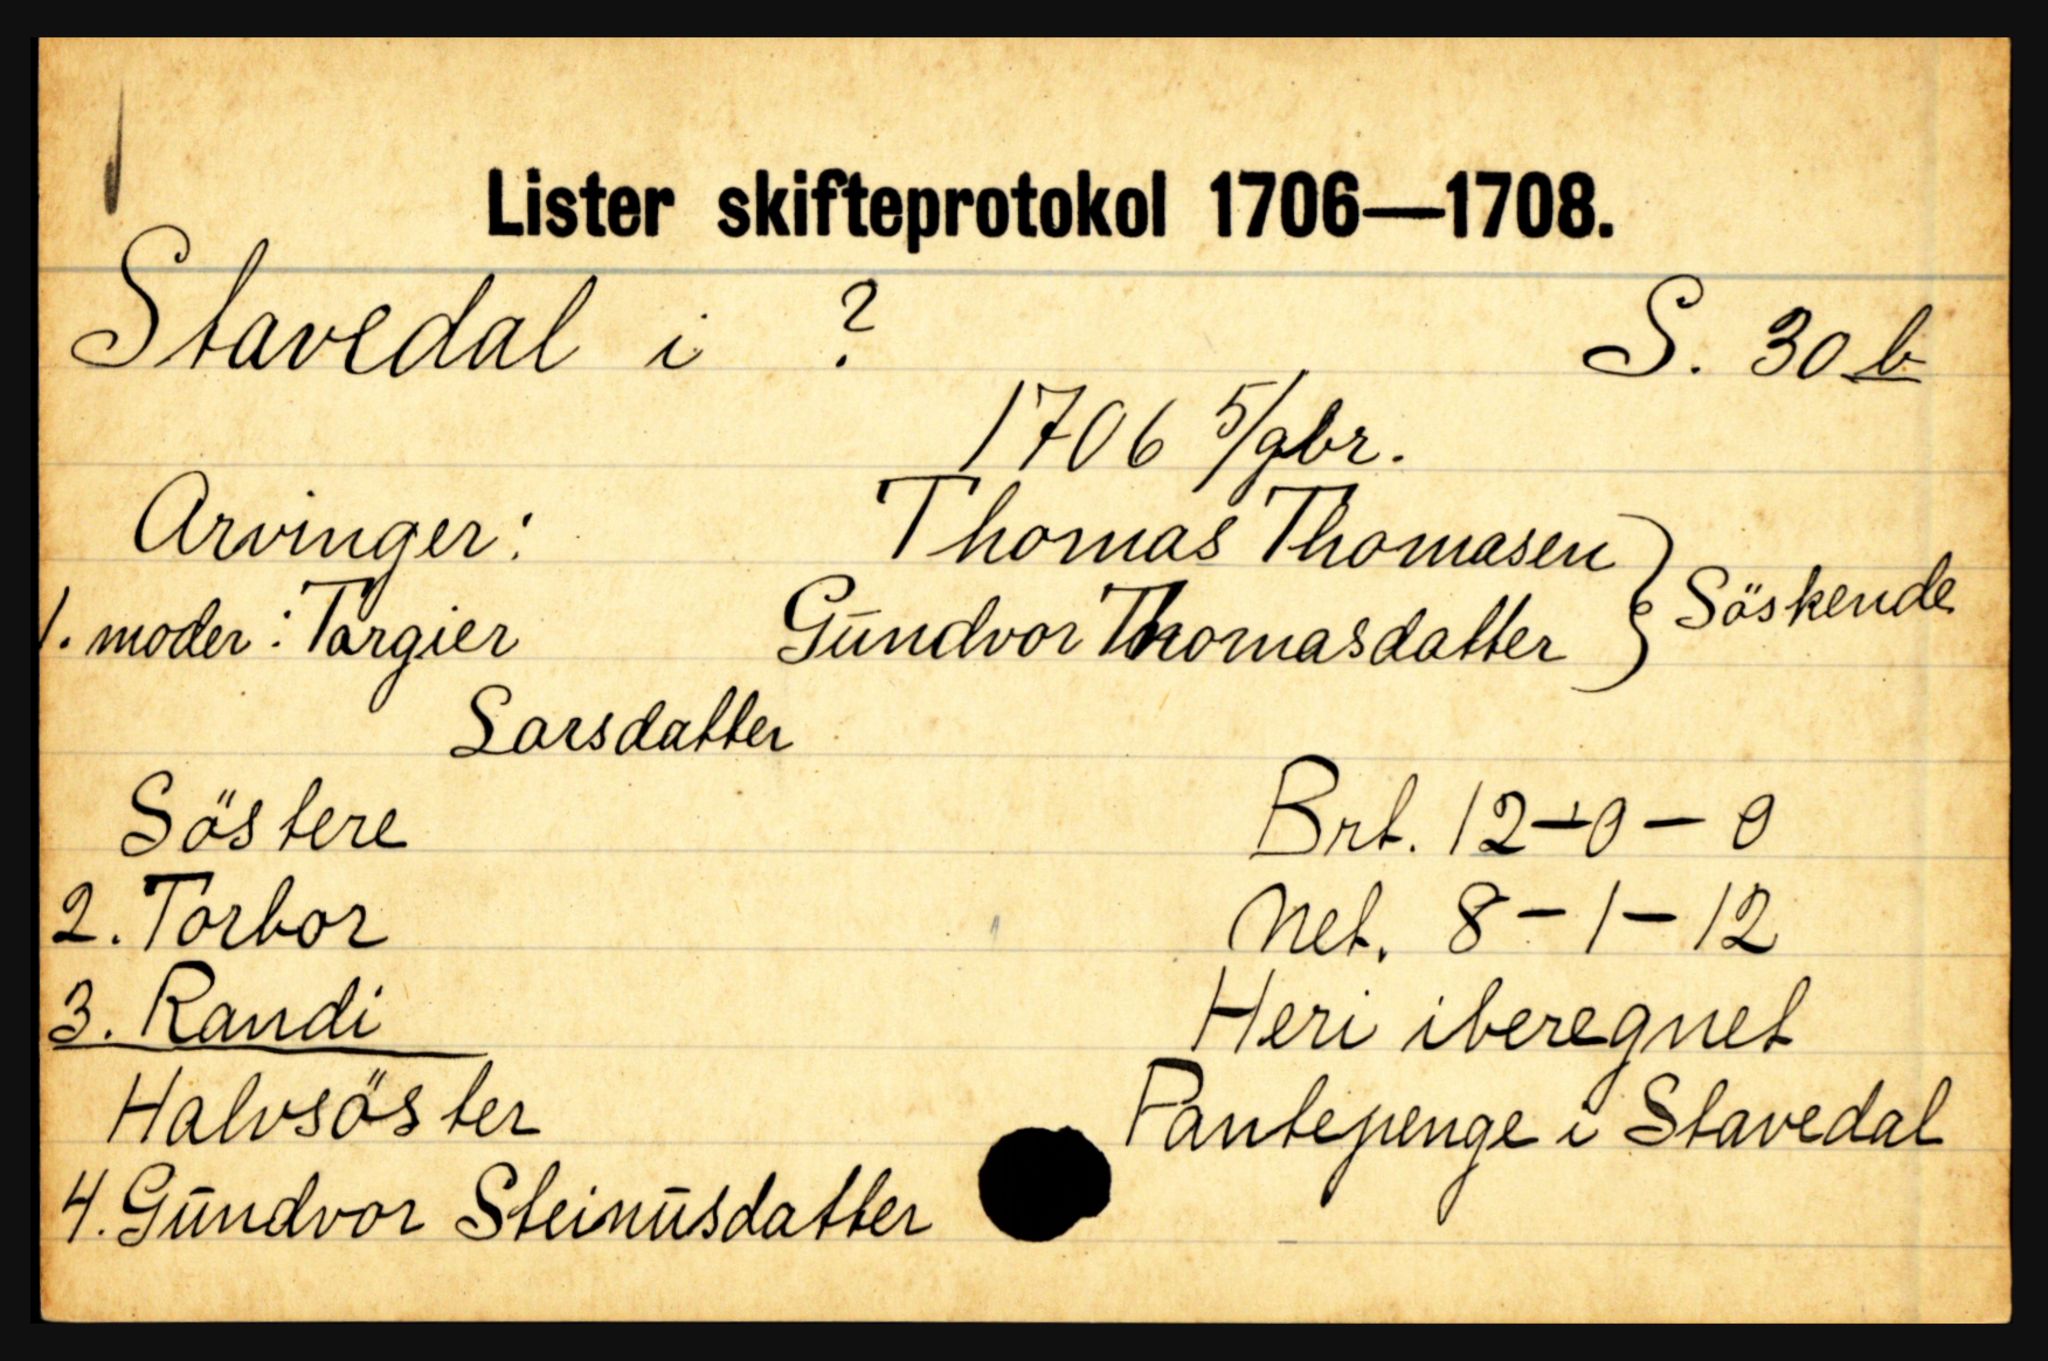 Lister skifteprotokol 1706—1708.
Stavedal i ? S. 30 b
1706 5/9br.
Arvinger: Thomas Thomasen } Söskende
1. moder: Targier Gūndvor Thomasdatter
Larsdatter
Söstere Brt. 12-0-0
2. Torbor Net. 8-1-12
3. Randi Heri iberegnet
Halvsöster Pantepenge i Stavedal
4. Gūndvor Steinūsdatter